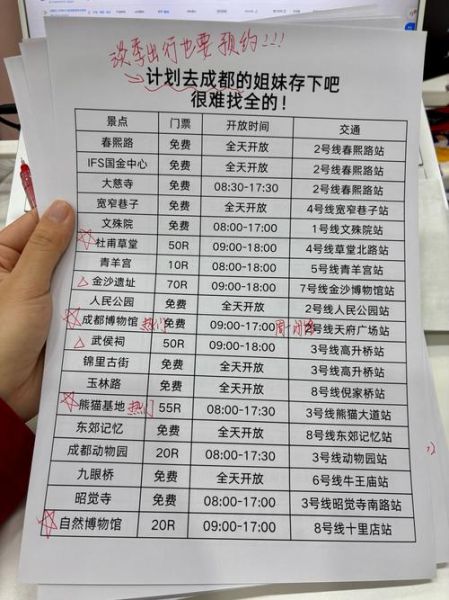 淡季出行也要预约!!!
计划去成都的姐妹存下吧
很难找全的!
景点 门票 开放时间 交通
春熙路 免费 全天开放 2号线春熙路站
IFS国金中心 免费 全天开放 2号线春熙路站
大慈寺 免费 08:30-17:30 2号线春熙路站
宽窄巷子 免费 全天开放 4号线宽窄巷子站
文殊院 免费 08:00-17:00 1号线文殊院站
☆杜甫草堂 50R 09:00-18:00 4号线草堂北路站
青羊宫 10R 08:00-18:00 5号线青羊宫站
△金沙遗址 70R 09:00-18:00 7号线金沙博物馆站
人民公园 免费 全天开放 2号线人民公园站
☆成都博物馆 热门 免费 09:00-17:00 周一闭馆 2号线天府广场站
△武侯祠 50R 09:00-18:00 3号线高升桥站
锦里古街 免费 全天开放 3号线高升桥站
玉林路 免费 全天开放 8号线倪家桥站
☆熊猫基地 热门 55R 08:00-17:30 3号线熊猫大道站
东郊记忆 免费 全天开放 8号线东郊记忆站
成都动物园 20R 08:00-17:30 3号线动物园站
九眼桥 免费 全天开放 6号线牛王庙站
昭觉寺 免费 08:00-17:00 3号线昭觉寺南路站
☆自然博物馆 20R 09:00-17:00 8号线十里店站